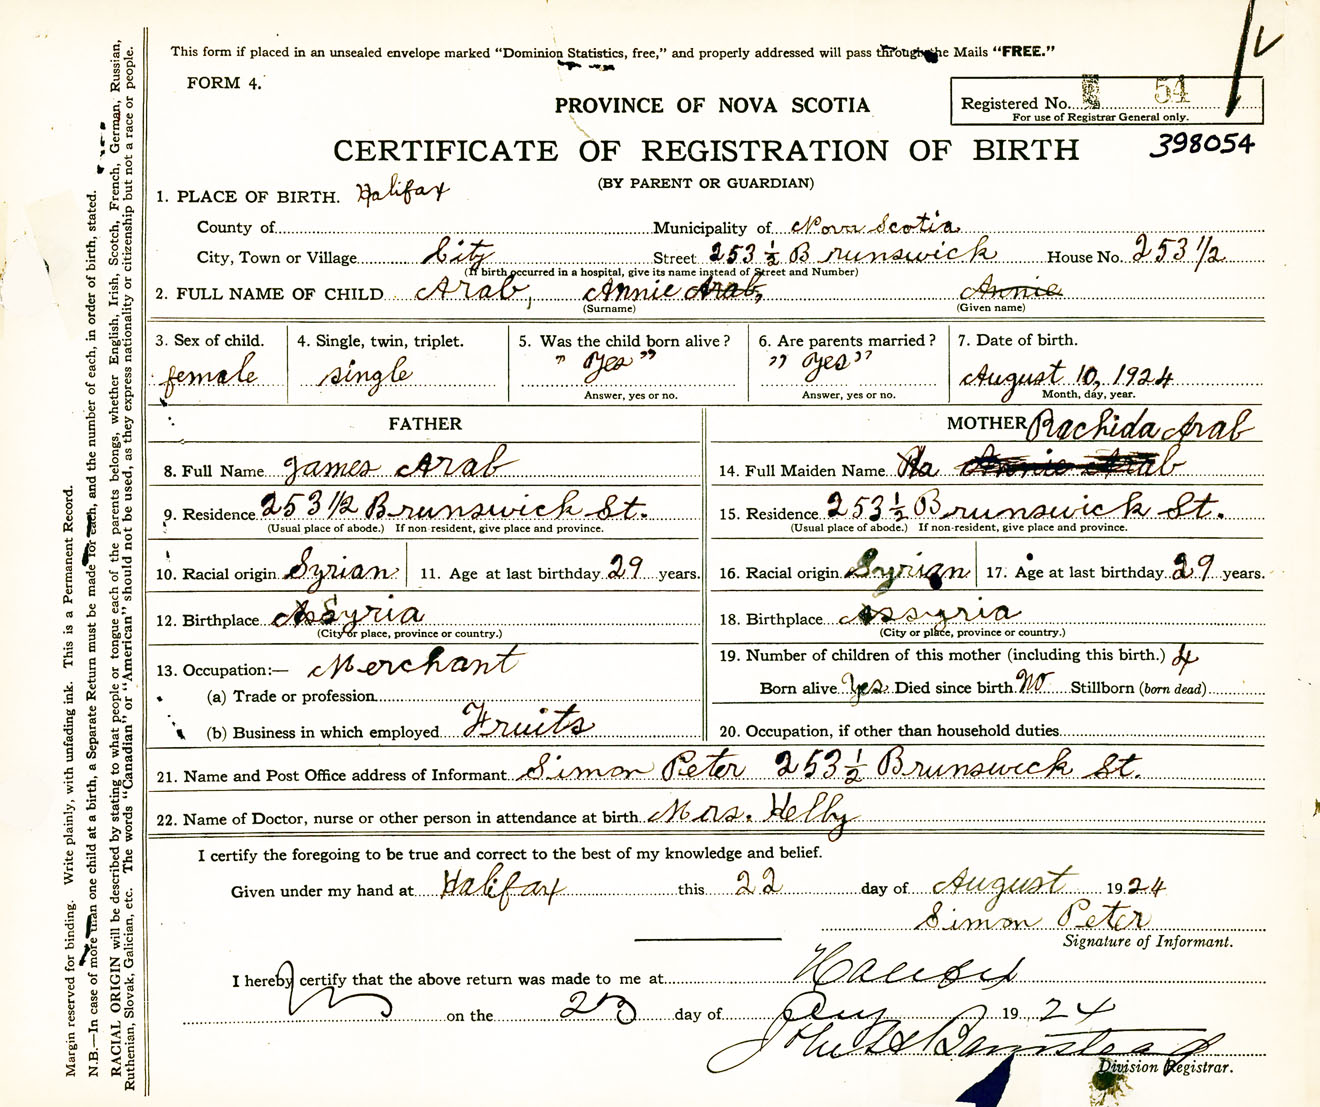 This form if placed in an unsealed envelope marked “Dominion Statistics, free,” and properly addressed will pass through the Mails “FREE.”
FORM 4.
PROVINCE OF NOVA SCOTIA
Registered No. 54
For use of Registrar General only.
CERTIFICATE OF REGISTRATION OF BIRTH
398054
(BY PARENT OR GUARDIAN)
1. PLACE OF BIRTH. Halifax
County of Municipality of Nova Scotia
City, Town or Village City Street 253 ½ Brunswick House No. 253 1/2
(If birth occurred in a hospital, give its name instead of Street and Number)
2. FULL NAME OF CHILD Arab, Annie Arab, Annie
(Surname) (Given name)
3. Sex of child. 4. Single, twin, triplet. 5. Was the child born alive? 6. Are parents married? 7. Date of birth.
female single " Yes " " Yes " August 10, 1924
Answer, yes or no. Answer, yes or no. Month, day, year.
FATHER MOTHER Rachida Arab
8. Full Name James Arab 14. Full Maiden Name Ra Annie Arab
9. Residence 253 1/2 Brunswick St. 15. Residence 253 ½ Brunswick St.
(Usual place of abode.) If non-resident, give place and province. (Usual place of abode.) If non-resident, give place and province.
10. Racial origin Syrian 11. Age at last birthday 29 years. 16. Racial origin Syrian 17. Age at last birthday 29 years.
12. Birthplace Assyria 18. Birthplace Assyria
(City or place, province or country.) (City or place, province or country.)
13. Occupation:— Merchant 19. Number of children of this mother (including this birth.) 4
(a) Trade or profession Born alive Yes Died since birth No Stillborn (born dead)
(b) Business in which employed Fruits 20. Occupation, if other than household duties
21. Name and Post Office address of Informant Simon Peter 253 ½ Brunswick St.
22. Name of Doctor, nurse or other person in attendance at birth Mrs. Helby
I certify the foregoing to be true and correct to the best of my knowledge and belief.
Given under my hand at Halifax this 22 day of August 1924
Simon Peter
Signature of Informant.
I hereby certify that the above return was made to me at Halifax
on the 23 day of Aug 1924
Division Registrar.
Margin reserved for binding. Write plainly, with unfading ink. This is a Permanent Record.
N.B.—In case of more than one child at a birth, a Separate Return must be made for each, and the number of each, in order of birth, stated.
RACIAL ORIGIN will be described by stating to what people or tongue each of the parents belongs, whether English, Irish, Scotch, French, German, Russian,
Ruthenian, Slovak, Galician, etc. The words “Canadian” or “American” should not be used, as they express nationality or citizenship but not a race or people.